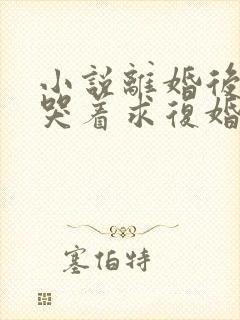 小説離婚後
哭着求復婚
塞伯特